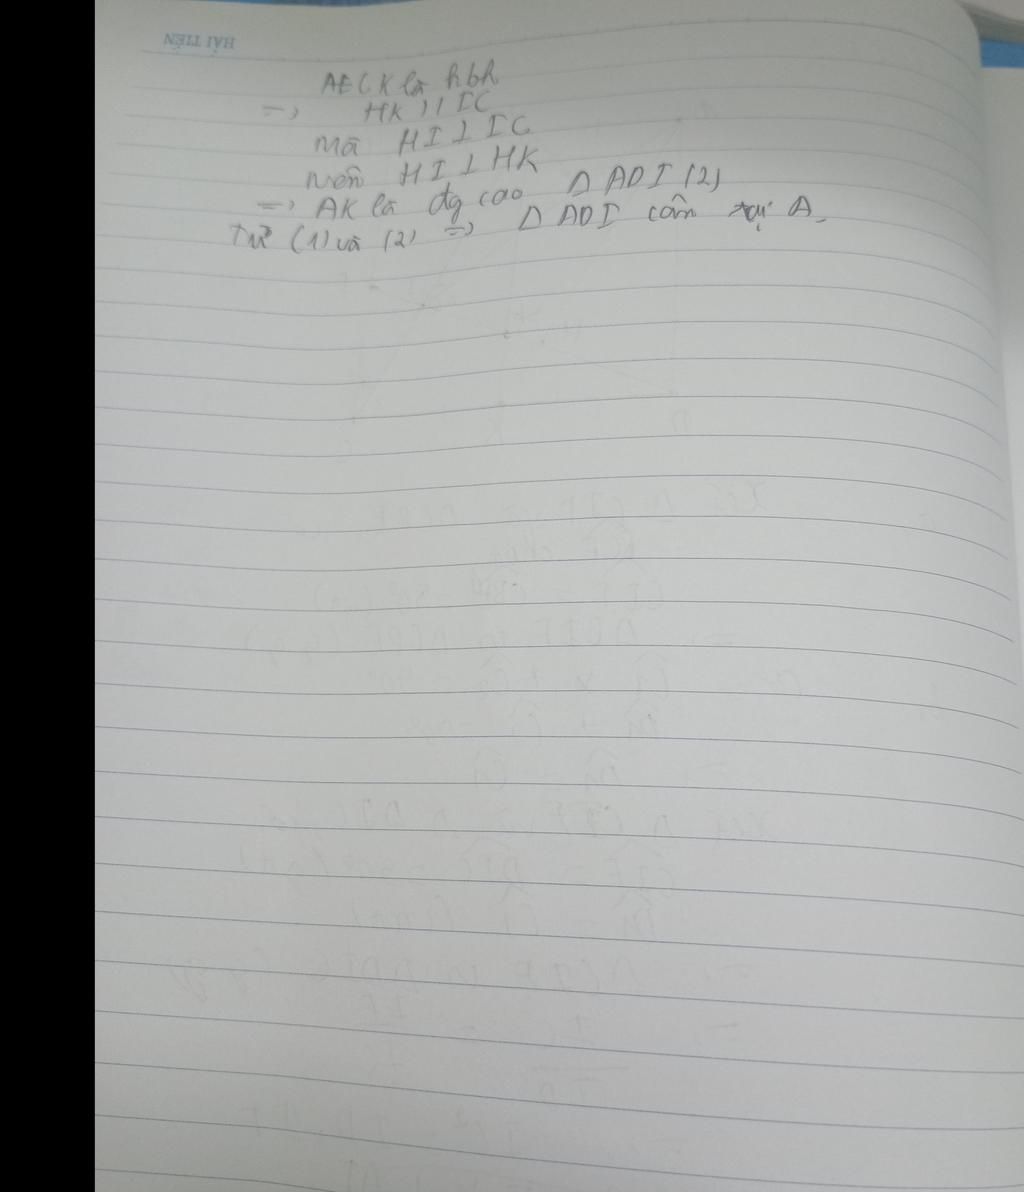 HẢI TIẾN
AECK là hbh
=> HK // IC
Mà HI ⊥ IC
Nên HI ⊥ HK
=> AK là đg cao Δ ADI (2)
Từ (1) và (2) => Δ ADI cân tại A